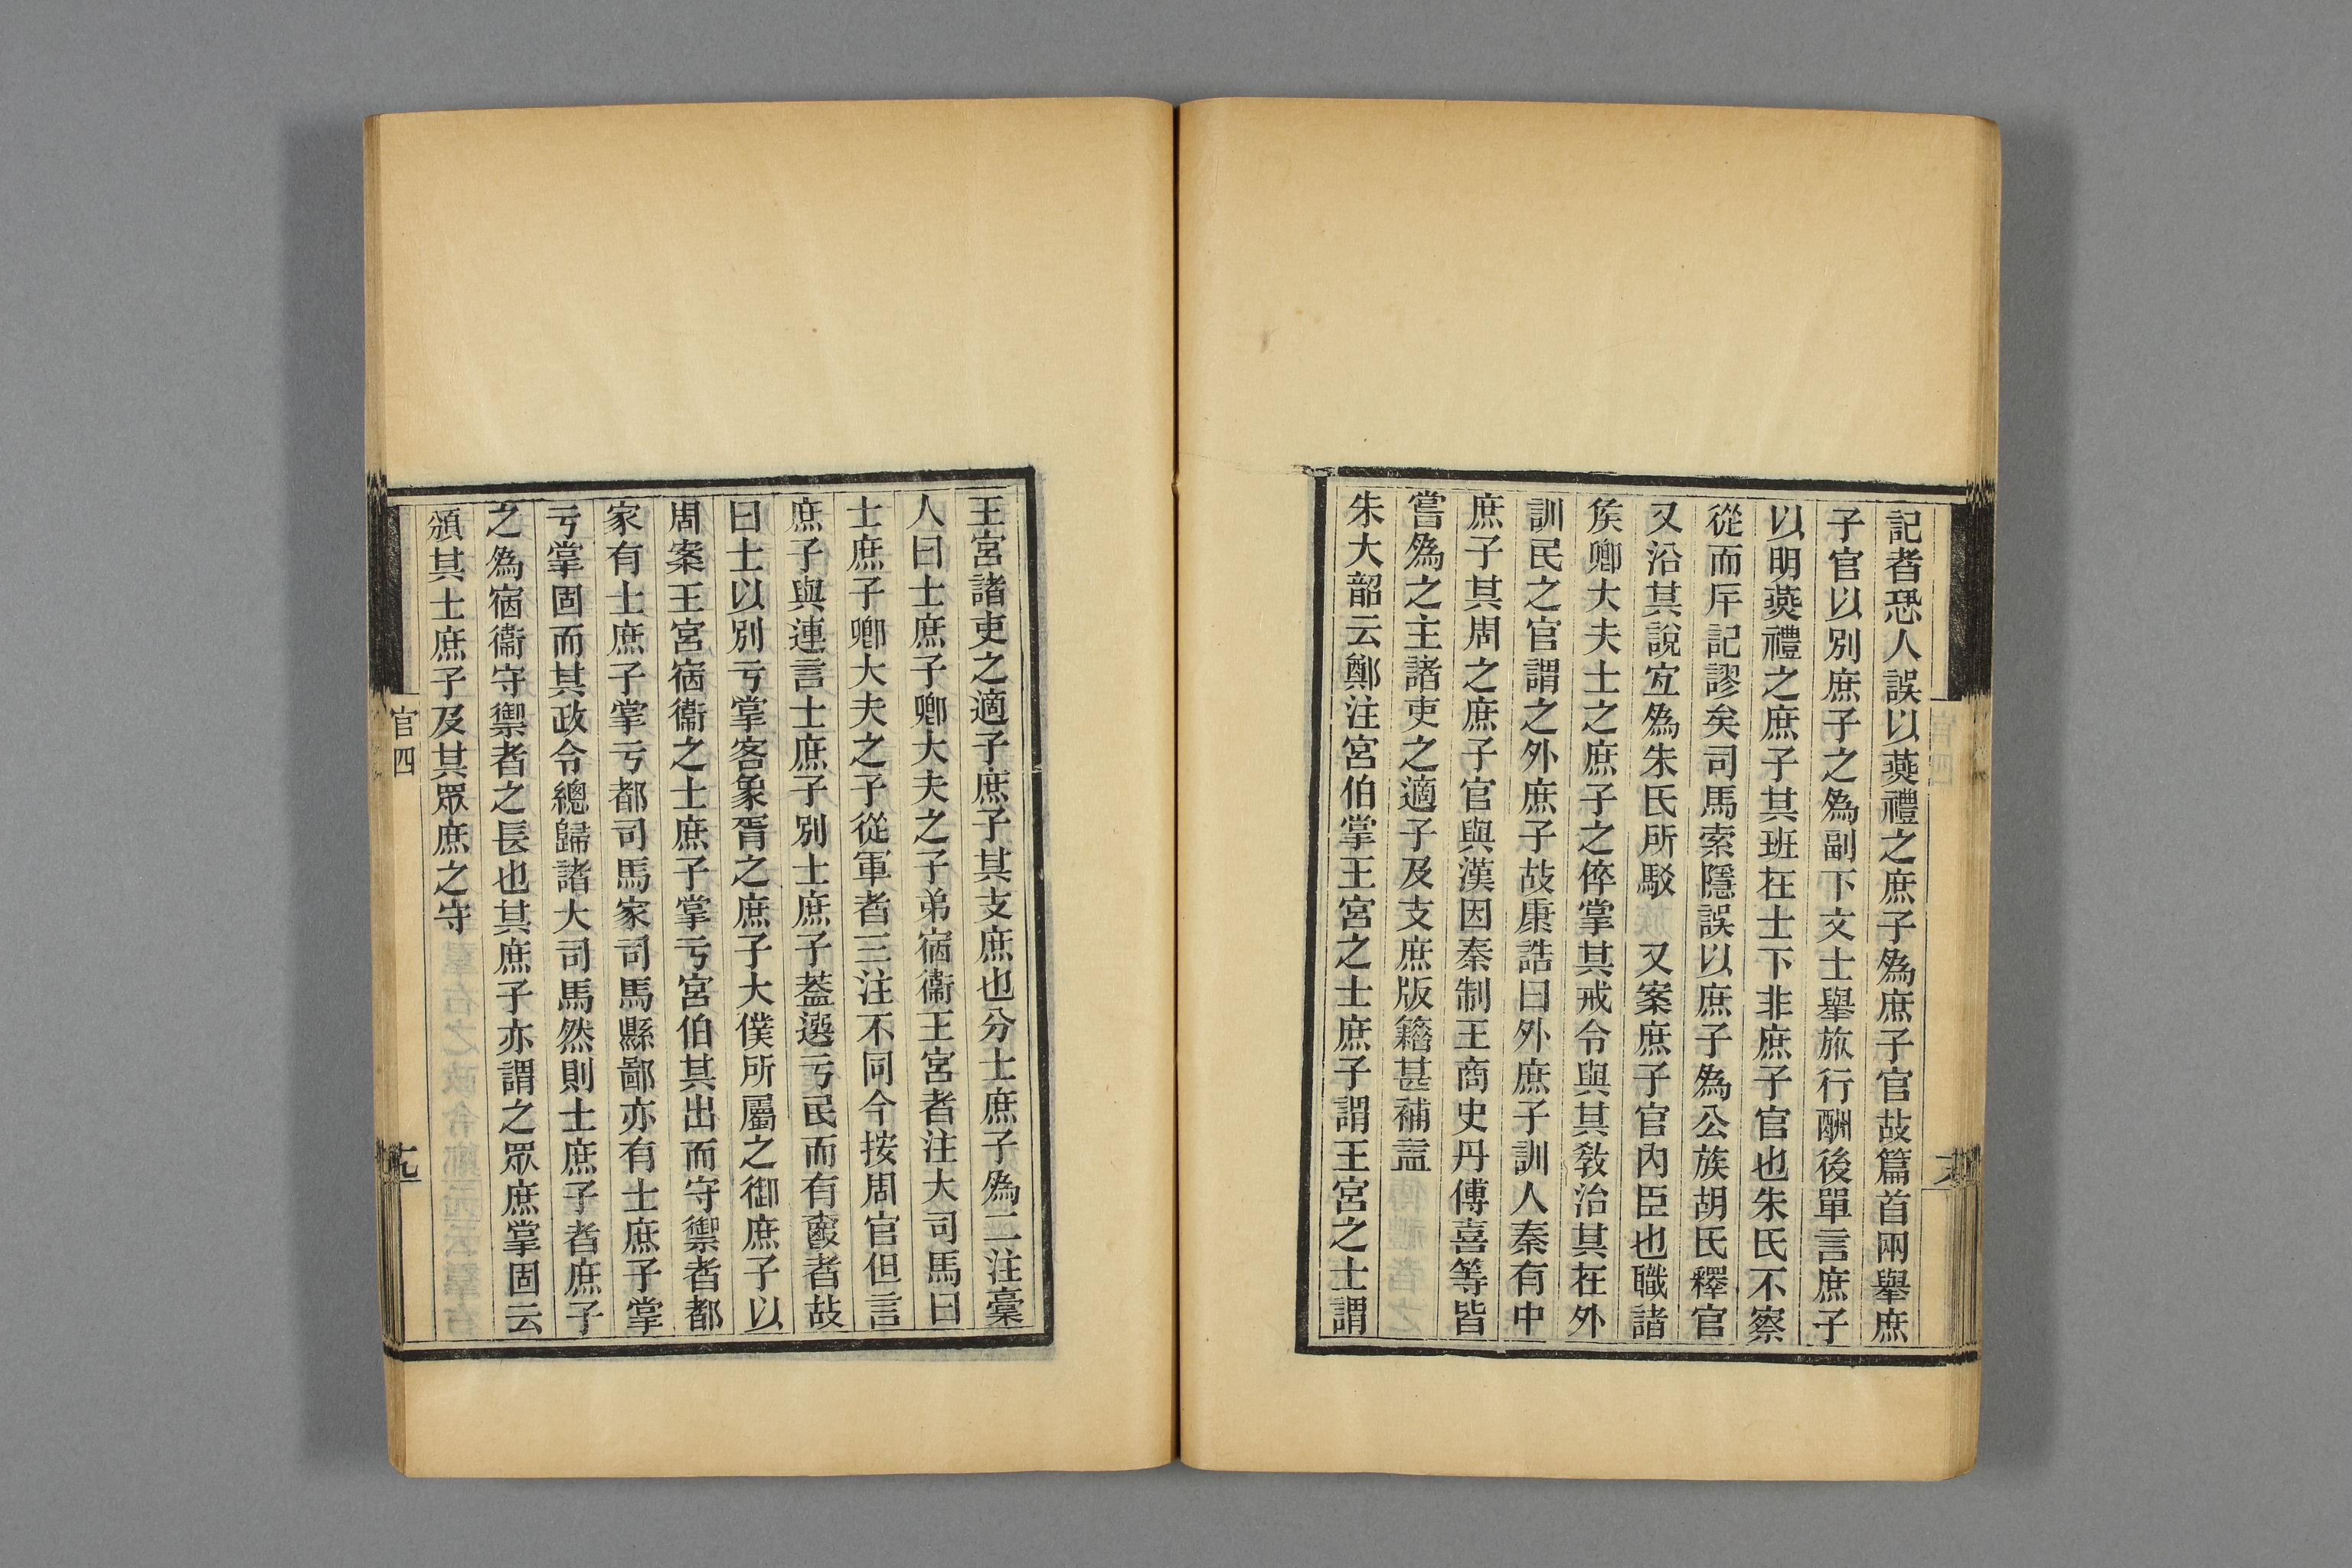 記者恐人誤以燕禮之庶子為庶子官故篇首兩舉庶
子官以別庶子之為副下文士舉旅行酬後單言庶子
以明燕禮之庶子其班在士下非庶子官也朱氏不察
從而厈記謬矣司馬索隱誤以庶子為公族胡氏釋官
又沿其說宐為朱氏所駁　又案庶子官內臣也職諸
矦卿大夫士之庶子之倅掌其戒令與其敎治其在外
訓民之官謂之外庶子故康誥曰外庶子訓人秦有中
庶子其周之庶子官與漢因秦制王商史丹傅喜等皆
嘗為之主諸吏之適子及支庶版籍甚補益
朱大韶云鄭注宮伯掌王宮之士庶子謂王宮之士謂
王宮諸吏之適子庶子其支庶也分士庶子為二注稾
人曰士庶子卿大夫之子弟宿衞王宮者注大司馬曰
士庶子卿大夫之子從軍者三注不同今按周官但言
庶子與連言士庶子別士庶子蓋選亏民而有爵者故
曰士以別亏掌客象胥之庶子大僕所屬之御庶子以
周案王宮宿衞之士庶子掌亏宮伯其出而守禦者都
家有士庶子掌亏都司馬家司馬縣鄙亦有士庶子掌
亏掌固而其政令總歸諸大司馬然則士庶子者庶子
之為宿衞守禦者之長也其庶子亦謂之眾庶掌固云
頒其士庶子及其眾庶之守
官四
十九